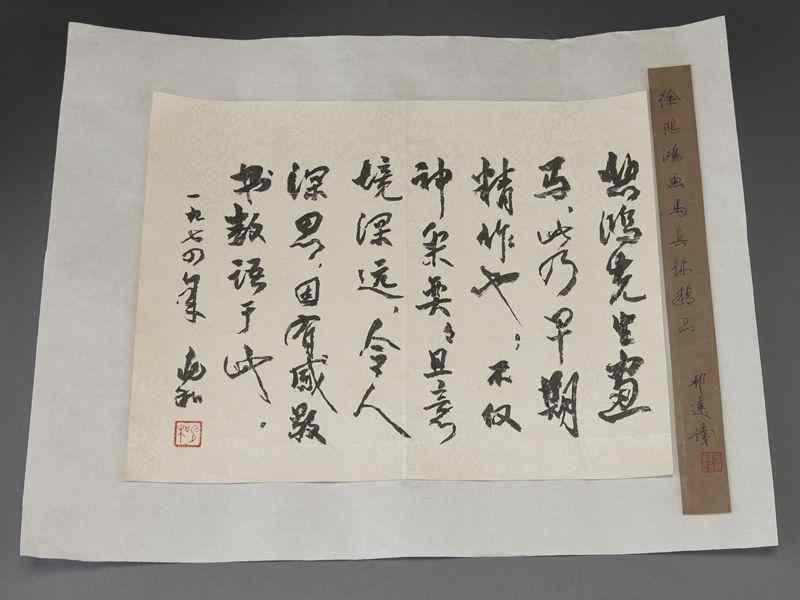 徐悲鸿画马真迹精品
悲鸿先生画
马，此乃早期
精作也；不仅
神采奕々且意
境深远，令人
深思，因有感敬
书数语于此。
一九七四年